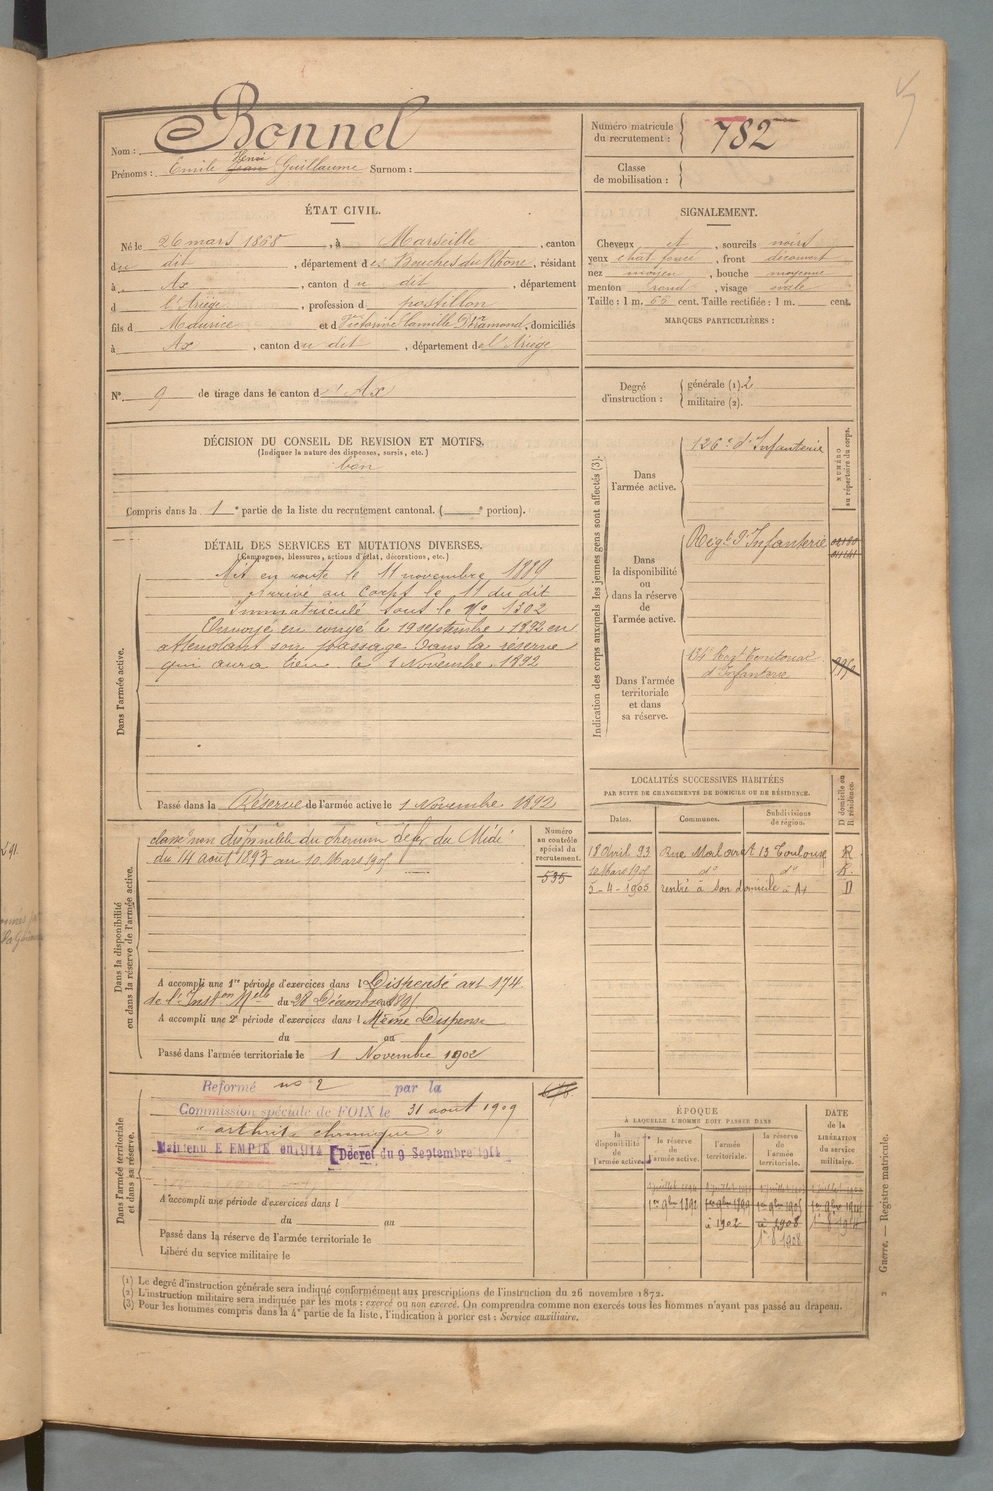 Nom : Bonnel
Prénoms : Emile Jean Henri Guillaume Surnom :
Numéro matricule du recrutement : 782
Classe de mobilisation :
ÉTAT CIVIL.
Né le 26 mars 1868, à Marseille, canton
du dit, département des Bouches du Rhône, résidant
à Ax, canton du dit, département
d l'Ariège, profession de postillon
fils d Maurice et d Victorine Camille, domiciliés
à Ax, canton du dit, département de l'Ariège
SIGNALEMENT.
Cheveux et, sourcils noirs
yeux chat foncé, front découvert
nez moyen, bouche moyenne
menton rond, visage ovale
Taille : 1 m. cent. Taille rectifiée : 1 m. cent.
MARQUES PARTICULIÈRES :
N° 9 de tirage dans le canton d'Ax
Degré d'instruction :
générale (1) 2
militaire (2).
DÉCISION DU CONSEIL DE REVISION ET MOTIFS.
(Indiquer la nature des dispenses, sursis, etc.)
bon
Compris dans la 1e partie de la liste du recrutement cantonal. ( e portion).
DÉTAIL DES SERVICES ET MUTATIONS DIVERSES.
(Campagnes, blessures, actions d'éclat, décorations, etc.)
Dans l'armée active.
Mis en route le 11 novembre 1889
Arrivé au Corps le 11 du dit
Immatriculé sous le No 1302
Envoyé en congé le 19 septembre 1892 en
attendant son passage dans la réserve
qui aura lieu le 1 Novembre 1892
Passé dans la Réserve de l'armée active le 1 Novembre 1892
Indication des corps auxquels les jeunes gens sont affectés (3).
NUMÉRO au répertoire du corps.
Dans l'armée active.
126e d'Infanterie
Dans la disponibilité ou dans la réserve de l'armée active.
Régt d'Infanterie
Dans l'armée territoriale et dans sa réserve.
134e Régt Territorial
d'Infanterie
LOCALITÉS SUCCESSIVES HABITÉES
PAR SUITE DE CHANGEMENTS DE DOMICILE OU DE RÉSIDENCE.
D. domicile ou R. résidence.
Dates. Communes. Subdivisions de région.
18 Avril 93 Rue 13 Toulouse R
10 Mars 1905 do do R.
5-4-1905 rentré à son domicile à Ax D
Dans la disponibilité ou dans la réserve de l'armée active.
Numéro au contrôle spécial du recrutement.
535
classé non disponible du chemin de fer du Midi
du 14 août 1893 au 10 Mars 1905
A accompli une 1re période d'exercices dans l Dispensé art 174
de l'Inston Melle du 28 Décembre
A accompli une 2e période d'exercices dans l Même Dispense
du au
Passé dans l'armée territoriale le 1 Novembre 1902
Dans l'armée territoriale et dans sa réserve.
Reformé no 2 par la
Commission spéciale de FOIX le 31 août 1909
"arthrite chronique"
Maintenu REMPTE en 1914 [Décret du 9 Septembre 1914
A accompli une période d'exercices dans l
du au
Passé dans la réserve de l'armée territoriale le
Libéré du service militaire le
ÉPOQUE
À LAQUELLE L'HOMME DOIT PASSER DANS
DATE de la LIBÉRATION du service militaire.
la disponibilité de l'armée active.
la réserve de l'armée active.
l'armée territoriale.
la réserve de l'armée territoriale.
1er 9bre 1892
à 1902
à 1908
Guerre. — Registre matricule.
(1) Le degré d'instruction générale sera indiqué conformément aux prescriptions de l'instruction du 26 novembre 1872.
(2) L'instruction militaire sera indiquée par les mots : exercé ou non exercé. On comprendra comme non exercés tous les hommes n'ayant pas passé au drapeau.
(3) Pour les hommes compris dans la 4e partie de la liste, l'indication à porter est : Service auxiliaire.